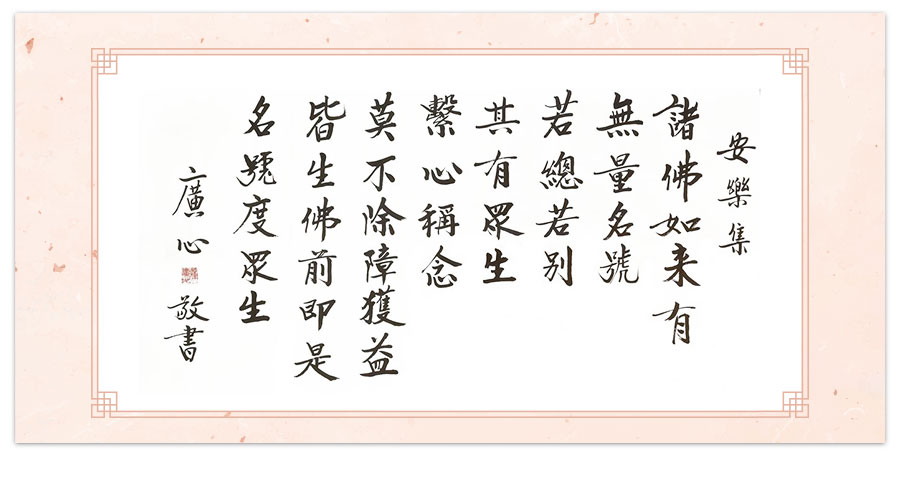 安樂集
諸佛如来有
無量名號
若總若別
其有眾生
繫心稱念
莫不除障獲益
皆生佛前即是
名號度眾生
廣心
敬書